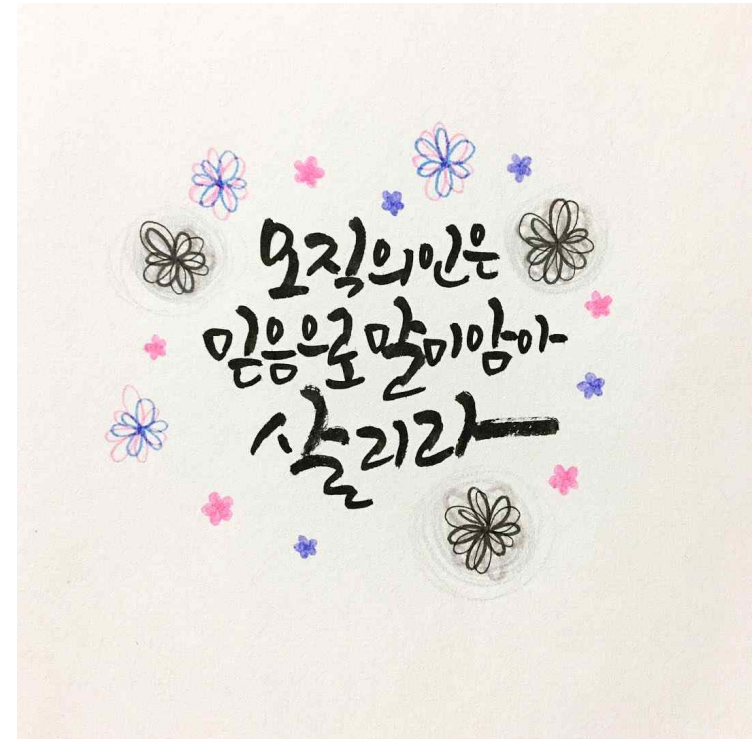 오직 의인은
믿음으로 말미암아
살리라